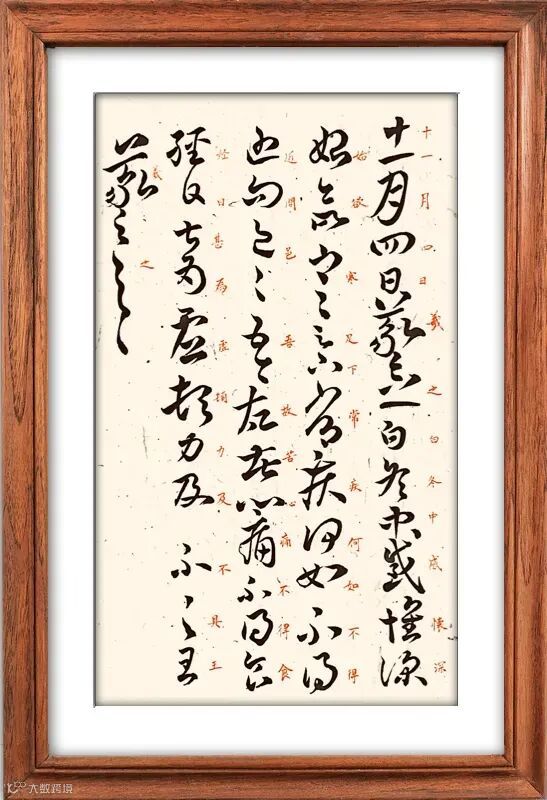 十一月四日羲之白冬中感懷深
十一月四日羲之白冬中感懷深
始欲寒足下常疾何如不得
始欲寒足下常疾何如不得
近問邑邑吾故苦心痛不得食
近問邑吾故苦心痛不得食
經日甚為虛頓力及不具王
經日甚為虛頓力及不具王
羲之
羲之
大数跨境